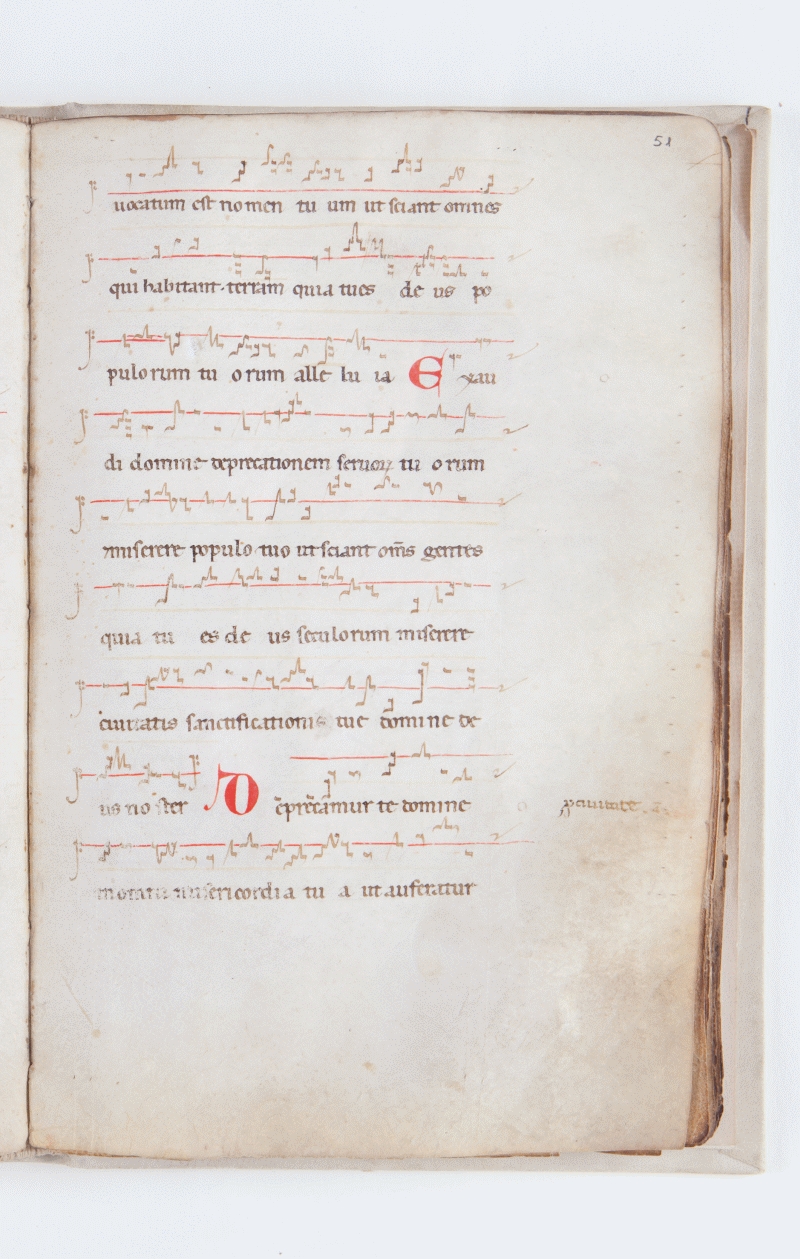 51
uocatum est no men tu um ut sciant omnes
qui habitant terram quia tu es de us po
pulorum tu orum alle lu ia Exau
di domine deprecationem seruoꝝ tu orum
miserere populo tuo ut sciant om̄s gentes
quia tu es de us seculorum miserere
ciuitatis sanctificationis tue domine de
us no ster Deprecamur te domine
misericordia tu a ut auferatur